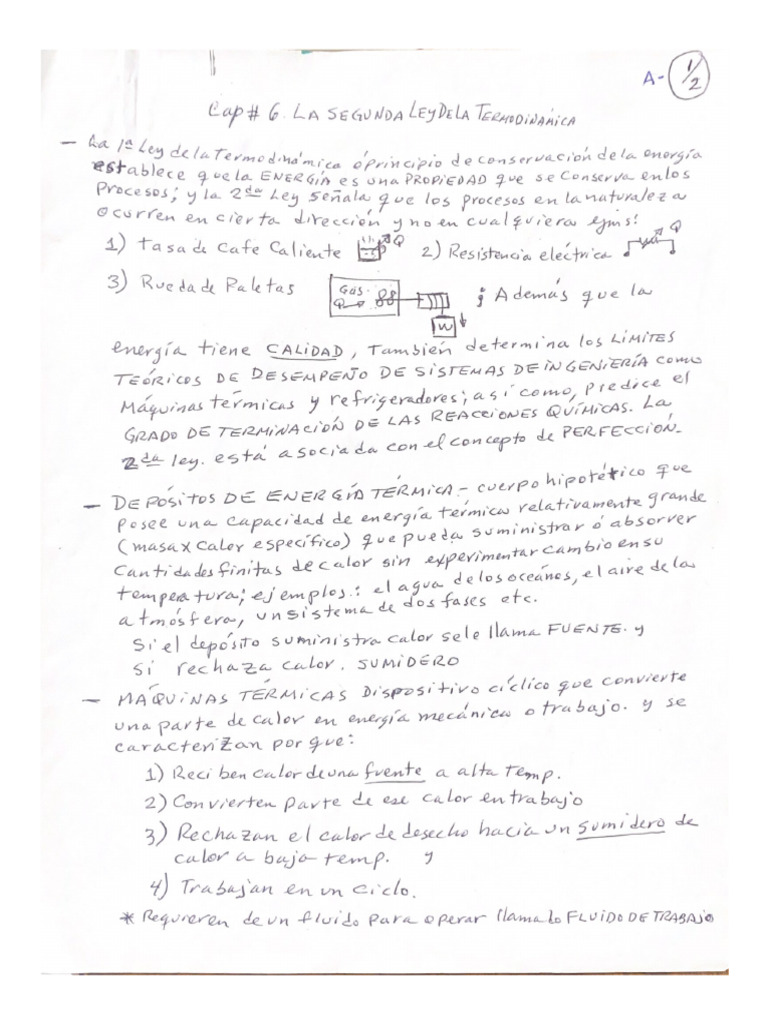 A- 1/2
Cap # 6. LA SEGUNDA LEY DE LA TERMODINÁMICA
- La 1ª Ley de la Termodinámica ó principio de conservación de la energía
establece que la ENERGÍA es una PROPIEDAD que se conserva en los
Procesos; y la 2da Ley señala que los procesos en la naturaleza
ocurren en cierta dirección y no en cualquiera ejms:
1) Tasa de Cafe Caliente Q 2) Resistencia eléctrica Q
3) Rueda de Paletas GAS Q W ; Además que la
energía tiene CALIDAD, También determina los LÍMITES
TEÓRICOS DE DESEMPEÑO DE SISTEMAS DE INGENIERÍA como
Máquinas térmicas y refrigeradores; así como, predice el
GRADO DE TERMINACIÓN DE LAS REACCIONES QUÍMICAS. LA
2da ley. está asociada con el concepto de PERFECCIÓN.
- DEPÓSITOS DE ENERGÍA TÉRMICA.- cuerpo hipotético que
posee una capacidad de energía térmica relativamente grande
(masa x calor específico) que pueda suministrar ó absorver
Cantidades finitas de calor sin experimentar cambio en su
temperatura; ejemplos: el agua de los oceános, el aire de la
atmósfera, un sistema de dos fases etc.
Si el depósito suministra calor se le llama FUENTE. y
si rechaza calor. SUMIDERO
- MÁQUINAS TÉRMICAS Dispositivo cíclico que convierte
una parte de calor en energía mecánica o trabajo. y se
caracterizan por que:
1) Reciben calor de una fuente a alta Temp.
2) Convierten parte de ese calor en trabajo
3) Rechazan el calor de desecho hacia un sumidero de
calor a baja temp. y
4) Trabajan en un ciclo.
* Requieren de un fluido para operar llamado FLUIDO DE TRABAJO